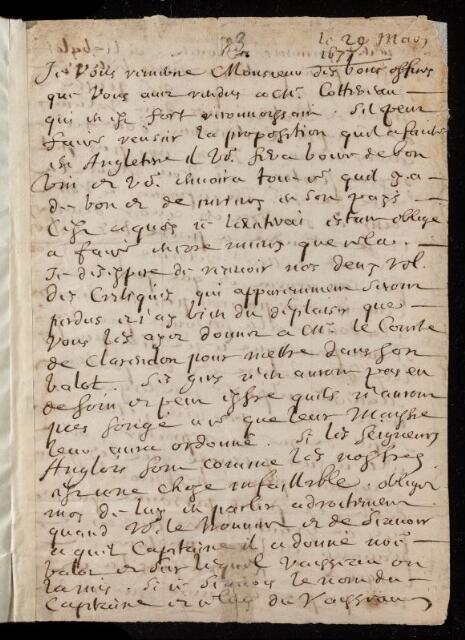 23
le 29 Mars
1677
Je vous remercie Monsieur des bons offices
que vous avez rendus a Mr.
qui en est fort reconnoissant. S'il peut
faire reussir la proposition qu'il a faite
en Angleterre il vo. fera boire de bon
vin et vo. envoira tout ce qu'il y a
de bon et de curieux en son païs.
C'est a quoy je l'exiterai estant obligé
a faire encore mieux que cela.
Je desespere de revoir nos deux vol.
des Critiques qui apparemment seront
perdus et j'ay bien du deplaisir que
vous les ayez donné a Mr. le Comte
de Clarendon pour mettre dans son
balot. Ses gens n'en auront pas eu
de soin et peut estre qu'ils n'auront
pas songé a ce que leur Maistre
leur aura ordonné. Si les Seigneurs
Anglois sont comme les nostres
c'est une chose infaillible. obligez
moy de luy en parler adroitement
quand vo. le trouverez et de scavoir
a quel Capitaine il a donné
balot et sur lequel vaisseau on
l'a mis. Si je scavois le nom du
Capitaine et celuy du Vaisseau